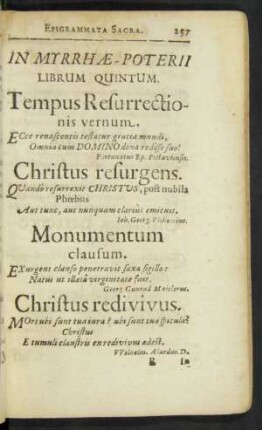 EPIGRAMMATA SACRA. 257
IN MYRRHÆ-POTERII
LIBRUM QUINTUM.
Tempus Resurrectio-
nis vernum.
ECce renascentis testatur gratia mundi,
Omnia cum DOMINO dona redisse suo!
Fortunatus Ep. Pictaviensis.
Christus resurgens.
QUando resurrexit CHRISTUS, post nubila
Phœbus
Aut tunc, aut nunquam clarius emicuit.
Ioh. Georg.
Monumentum
clausum.
EXurgens clauso penetravit saxa sigillo:
Natus ut illæsâ virginitate fuit.
Georg Conrad
Christus redivivus.
MOrs ubi sunt tua jura? ubi sunt tua spicula?
Christus
E tumuli claustris en redivivus adest.
VVilhelm. Alardus D.
R In